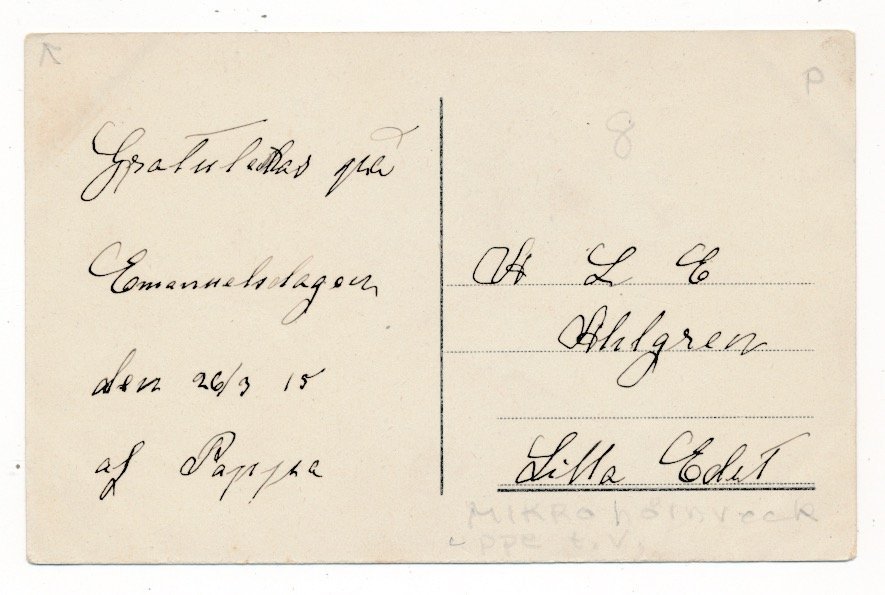 Gratuleras på
Emanuelsdagen
den 26/3 15
af Pappa
8
P
H L E
Ahlgren
Lilla Edet
ppe t.v.